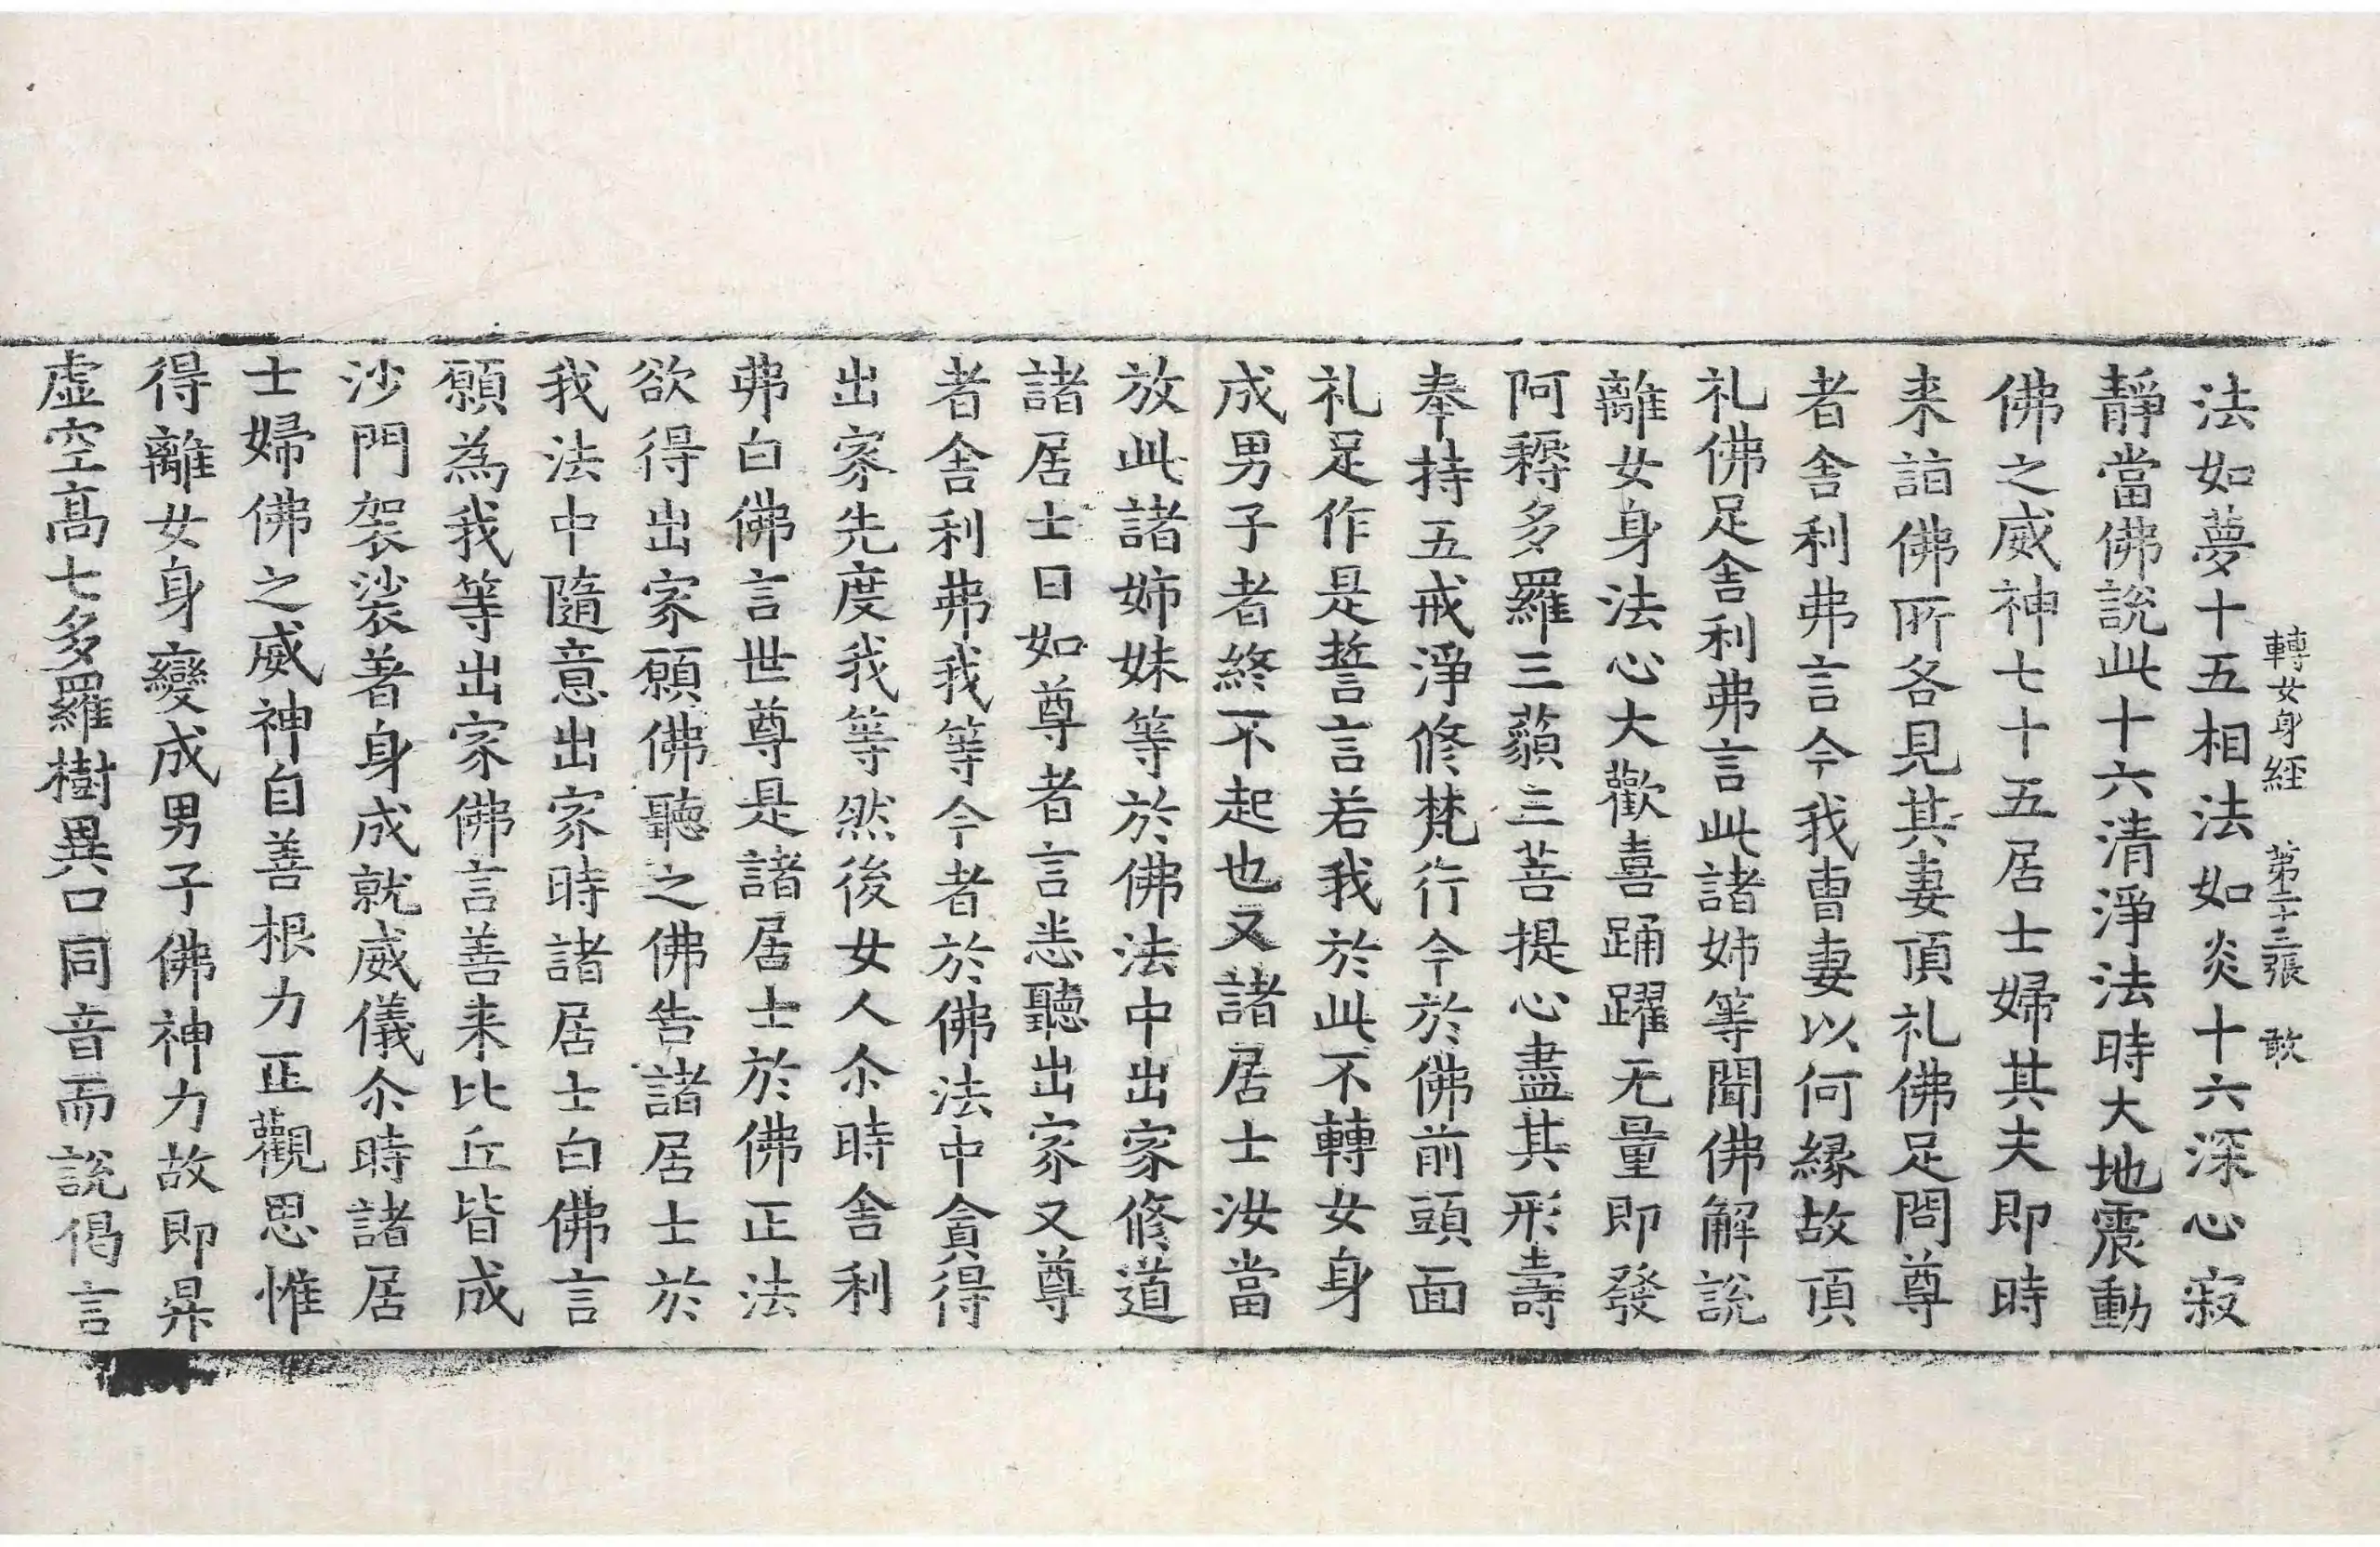 轉女身経 第二十三張 敢
法如夢十五相法如炎十六深心寂
靜當佛說此十六清淨法時大地震動
佛之威神七十五居士婦其夫即時
来詣佛所各見其妻頂礼佛足問尊
者舎利弗言今我曺妻以何縁故頂
礼佛足舎利弗言此諸姊等聞佛解說
離女身法心大歡喜踊躍无量即發
阿耨多羅三藐三菩提心盡其形壽
奉持五戒淨修梵行今於佛前頭面
礼足作是誓言若我於此不轉女身
成男子者終不起也又諸居士汝當
放此諸姊妹等於佛法中出家修道
諸居士曰如尊者言悉聽出家又尊
者舎利弗我等今者於佛法中貪得
出家先度我等然後女人尒時舎利
弗白佛言世尊是諸居士於佛正法
欲得出家願佛聽之佛告諸居士於
我法中隨意出家時諸居士白佛言
願為我等出家佛言善来比丘皆成
沙門袈裟著身成就威儀尒時諸居
士婦佛之威神自善根力正觀思惟
得離女身變成男子佛神力故即昇
虚空髙七多羅樹異口同音而說偈言